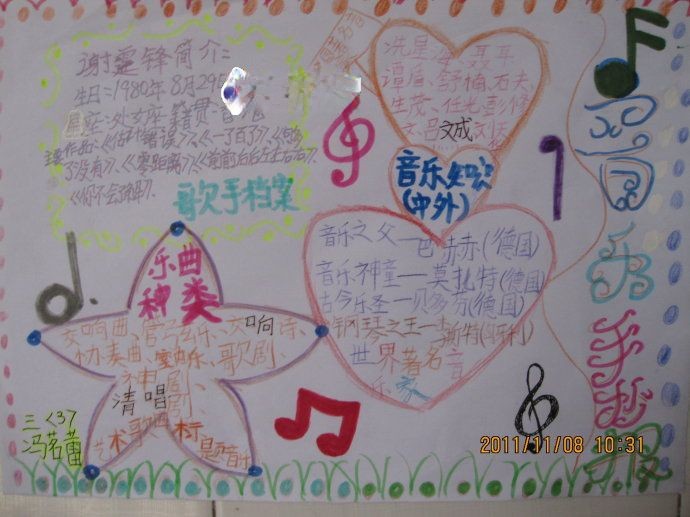 谢霆锋简介：
生日：1980年8月29
星座：处女座 籍贯：香港
主要作品：《估计错误》、《一了百了》、《
了没有》、《零距离》、《前前后后左左右右》、
《你不会了解》、
歌手档案
冼星海、聂耳
谭盾、舒楠、石夫
生茂、任光、彭修
文、吕文成、刘
音乐知识
(中外)
音乐之父—巴赫赫(德国)
音乐神童—莫扎特(德国)
古今乐圣—贝多芬(德国)
钢琴之王—李斯特(匈牙利)
世界著名音
乐家
乐曲
种类
交响曲、管弦乐、交响诗、
协奏曲、室内乐、歌剧、
神剧、
清唱剧、
艺术歌曲、标题音乐
三〈37
冯茗蕾
手抄报
2011/11/08 10:31